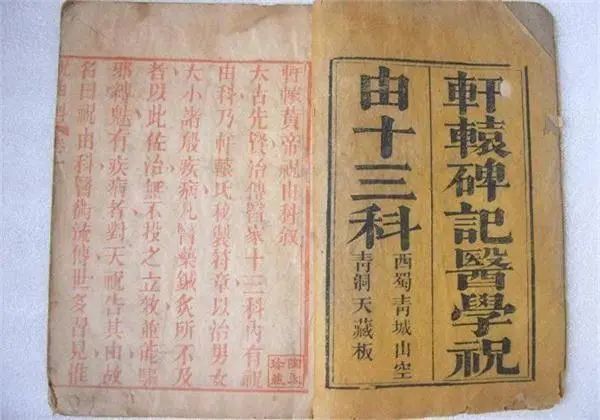 軒轅碑記醫學祝
由十三科
西蜀青城山空
青洞天藏板
軒轅黃帝祝由科敘
太古先賢治傳醫家十三科內有祝
由科乃軒轅氏秘製符章以治男女
大小諸般疾病凡醫藥鍼灸所不及
者以此佐治無不投之立效並能驅
邪縛魅有疾病者對天祝告其由故
名曰祝由科醫術流傳世多罕見惟